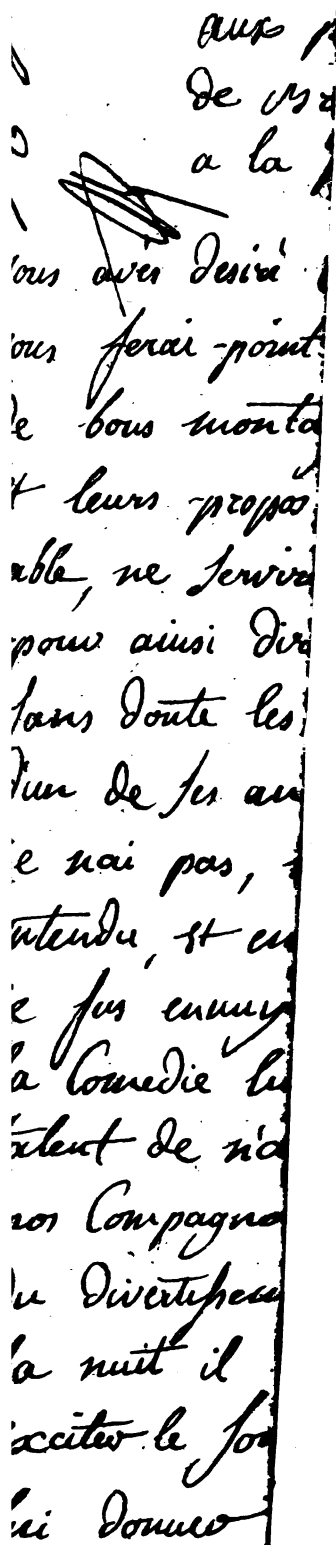 aux
de
a la
ous avés desiré
ous ferai point
de bous monta
t leurs propos
able, ne servir
pour ainsi dir
sans doute les
d'un de ses an
e nai pas,
ntendu, et en
e fus ennuy
la Comedie lu
talent de n'a
nos Compagno
du divertissem
la nuit il
exciter le son
lui donner